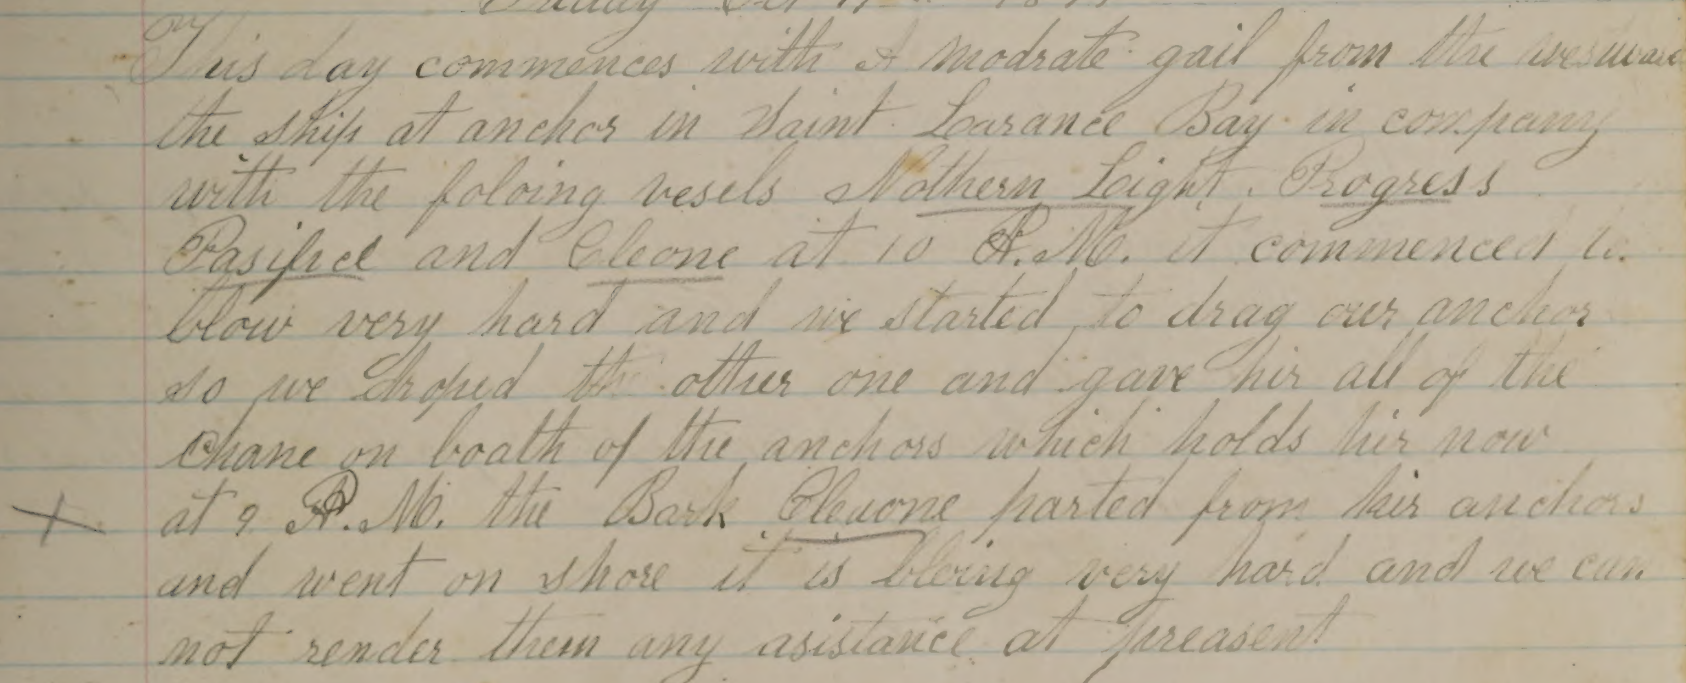 Friday Oct
This day commences with A modrate gail from the wesward
the ship at anchor in Saint Larance Bay in company
with the foloing vesels Nothern Leight. Progress
Pasificl and Cleone at 10 A.M. it commenced to
blow very hard and we started to drag our anchor
so we droped the other one and gave hir all of the
chane on boath of the anchors which holds hir now
at 2 P.M. the Bark Cleuone parted from hir anchors
and went on shore it is bloing very hard and we can
not render them any asistance at preasent